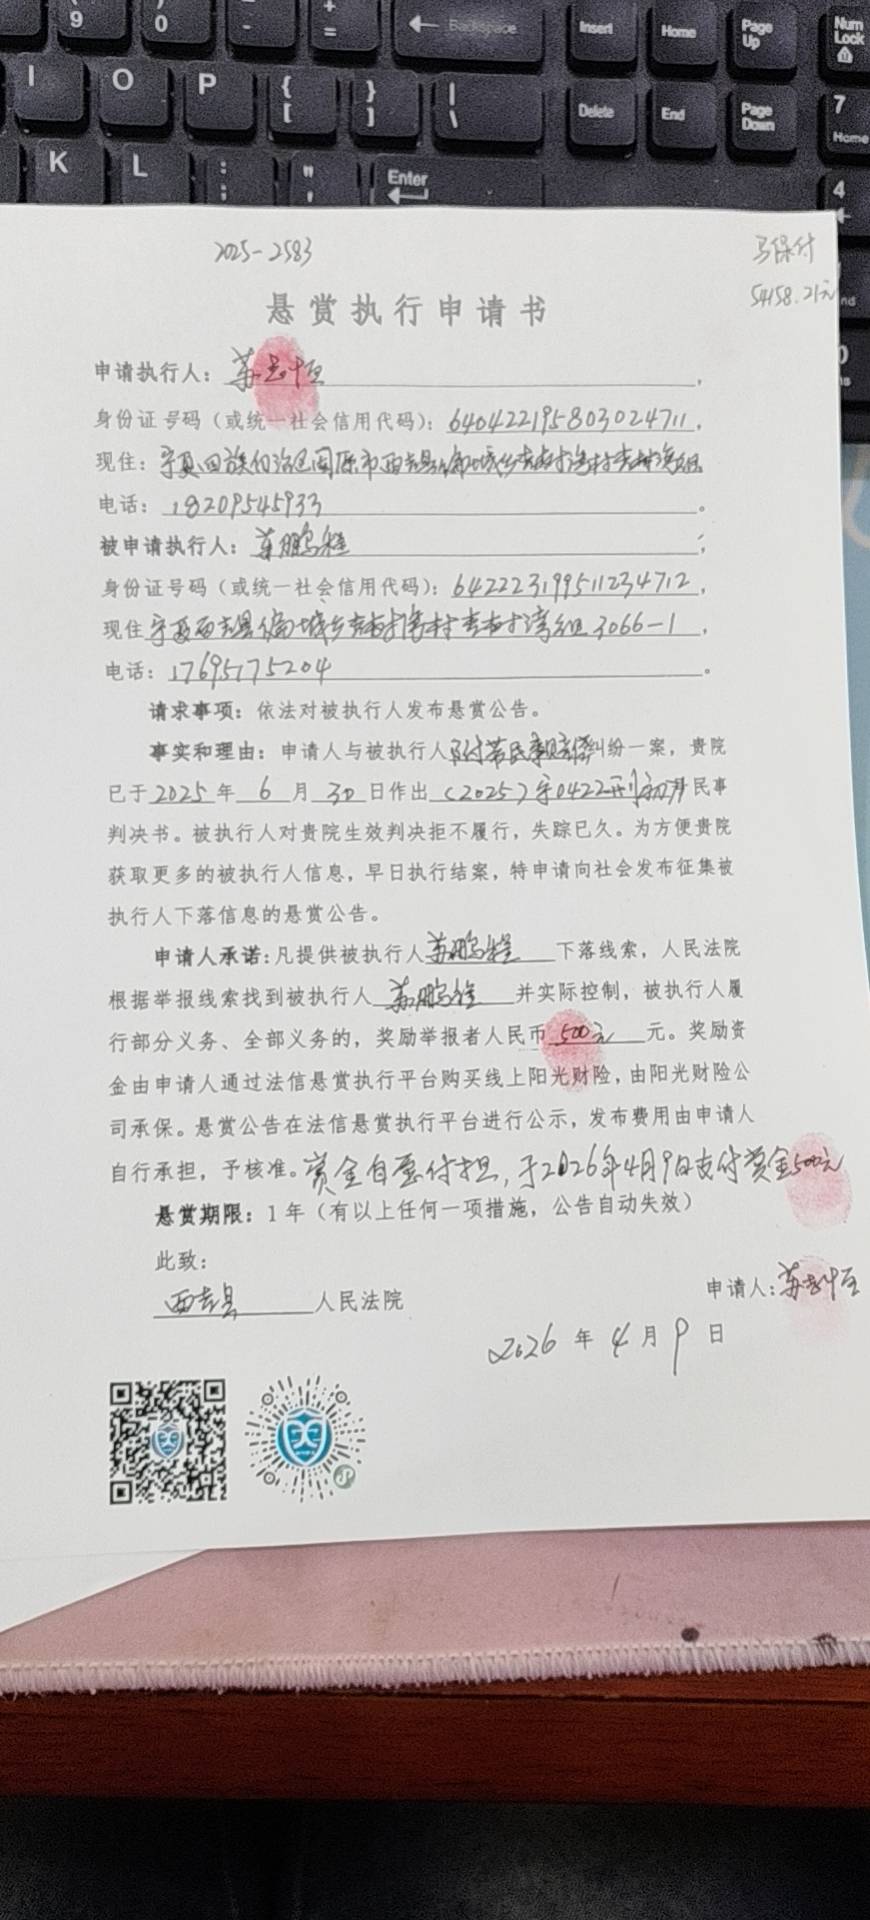 ( 9
) 0
- -
+ =
← Backspace
Insert
Home
Page Up
Num Lock
I
O
P
{ [
} ]
| \
Delete
End
Page Down
7 Home
K
L
: ;
" '
Enter
4
2025-2583
马保付
54158.21元
悬赏执行申请书
申请执行人：苏志恒，
身份证号码（或统一社会信用代码）：640422195803024711，
现住：宁夏回族自治区固原市西吉县偏城乡
电话：18209545933。
被申请执行人：苏鹏程；
身份证号码（或统一社会信用代码）：642223199511234712，
现住宁夏西吉县偏城乡 3066-1，
电话：17695175204。
请求事项：依法对被执行人发布悬赏公告。
事实和理由：申请人与被执行人附带民事赔偿纠纷一案，贵院
已于2025年6月30日作出（2025）宁0422刑初 民事
判决书。被执行人对贵院生效判决拒不履行，失踪已久。为方便贵院
获取更多的被执行人信息，早日执行结案，特申请向社会发布征集被
执行人下落信息的悬赏公告。
申请人承诺：凡提供被执行人苏鹏程下落线索，人民法院
根据举报线索找到被执行人苏鹏程并实际控制，被执行人履
行部分义务、全部义务的，奖励举报者人民币500元元。奖励资
金由申请人通过法信悬赏执行平台购买线上阳光财险，由阳光财险公
司承保。悬赏公告在法信悬赏执行平台进行公示，发布费用由申请人
自行承担，予核准。赏金自愿付担，于2026年4月9日支付赏金500元
悬赏期限：1年（有以上任何一项措施，公告自动失效）
此致：
西吉县人民法院
申请人：苏志恒
2026年4月9日